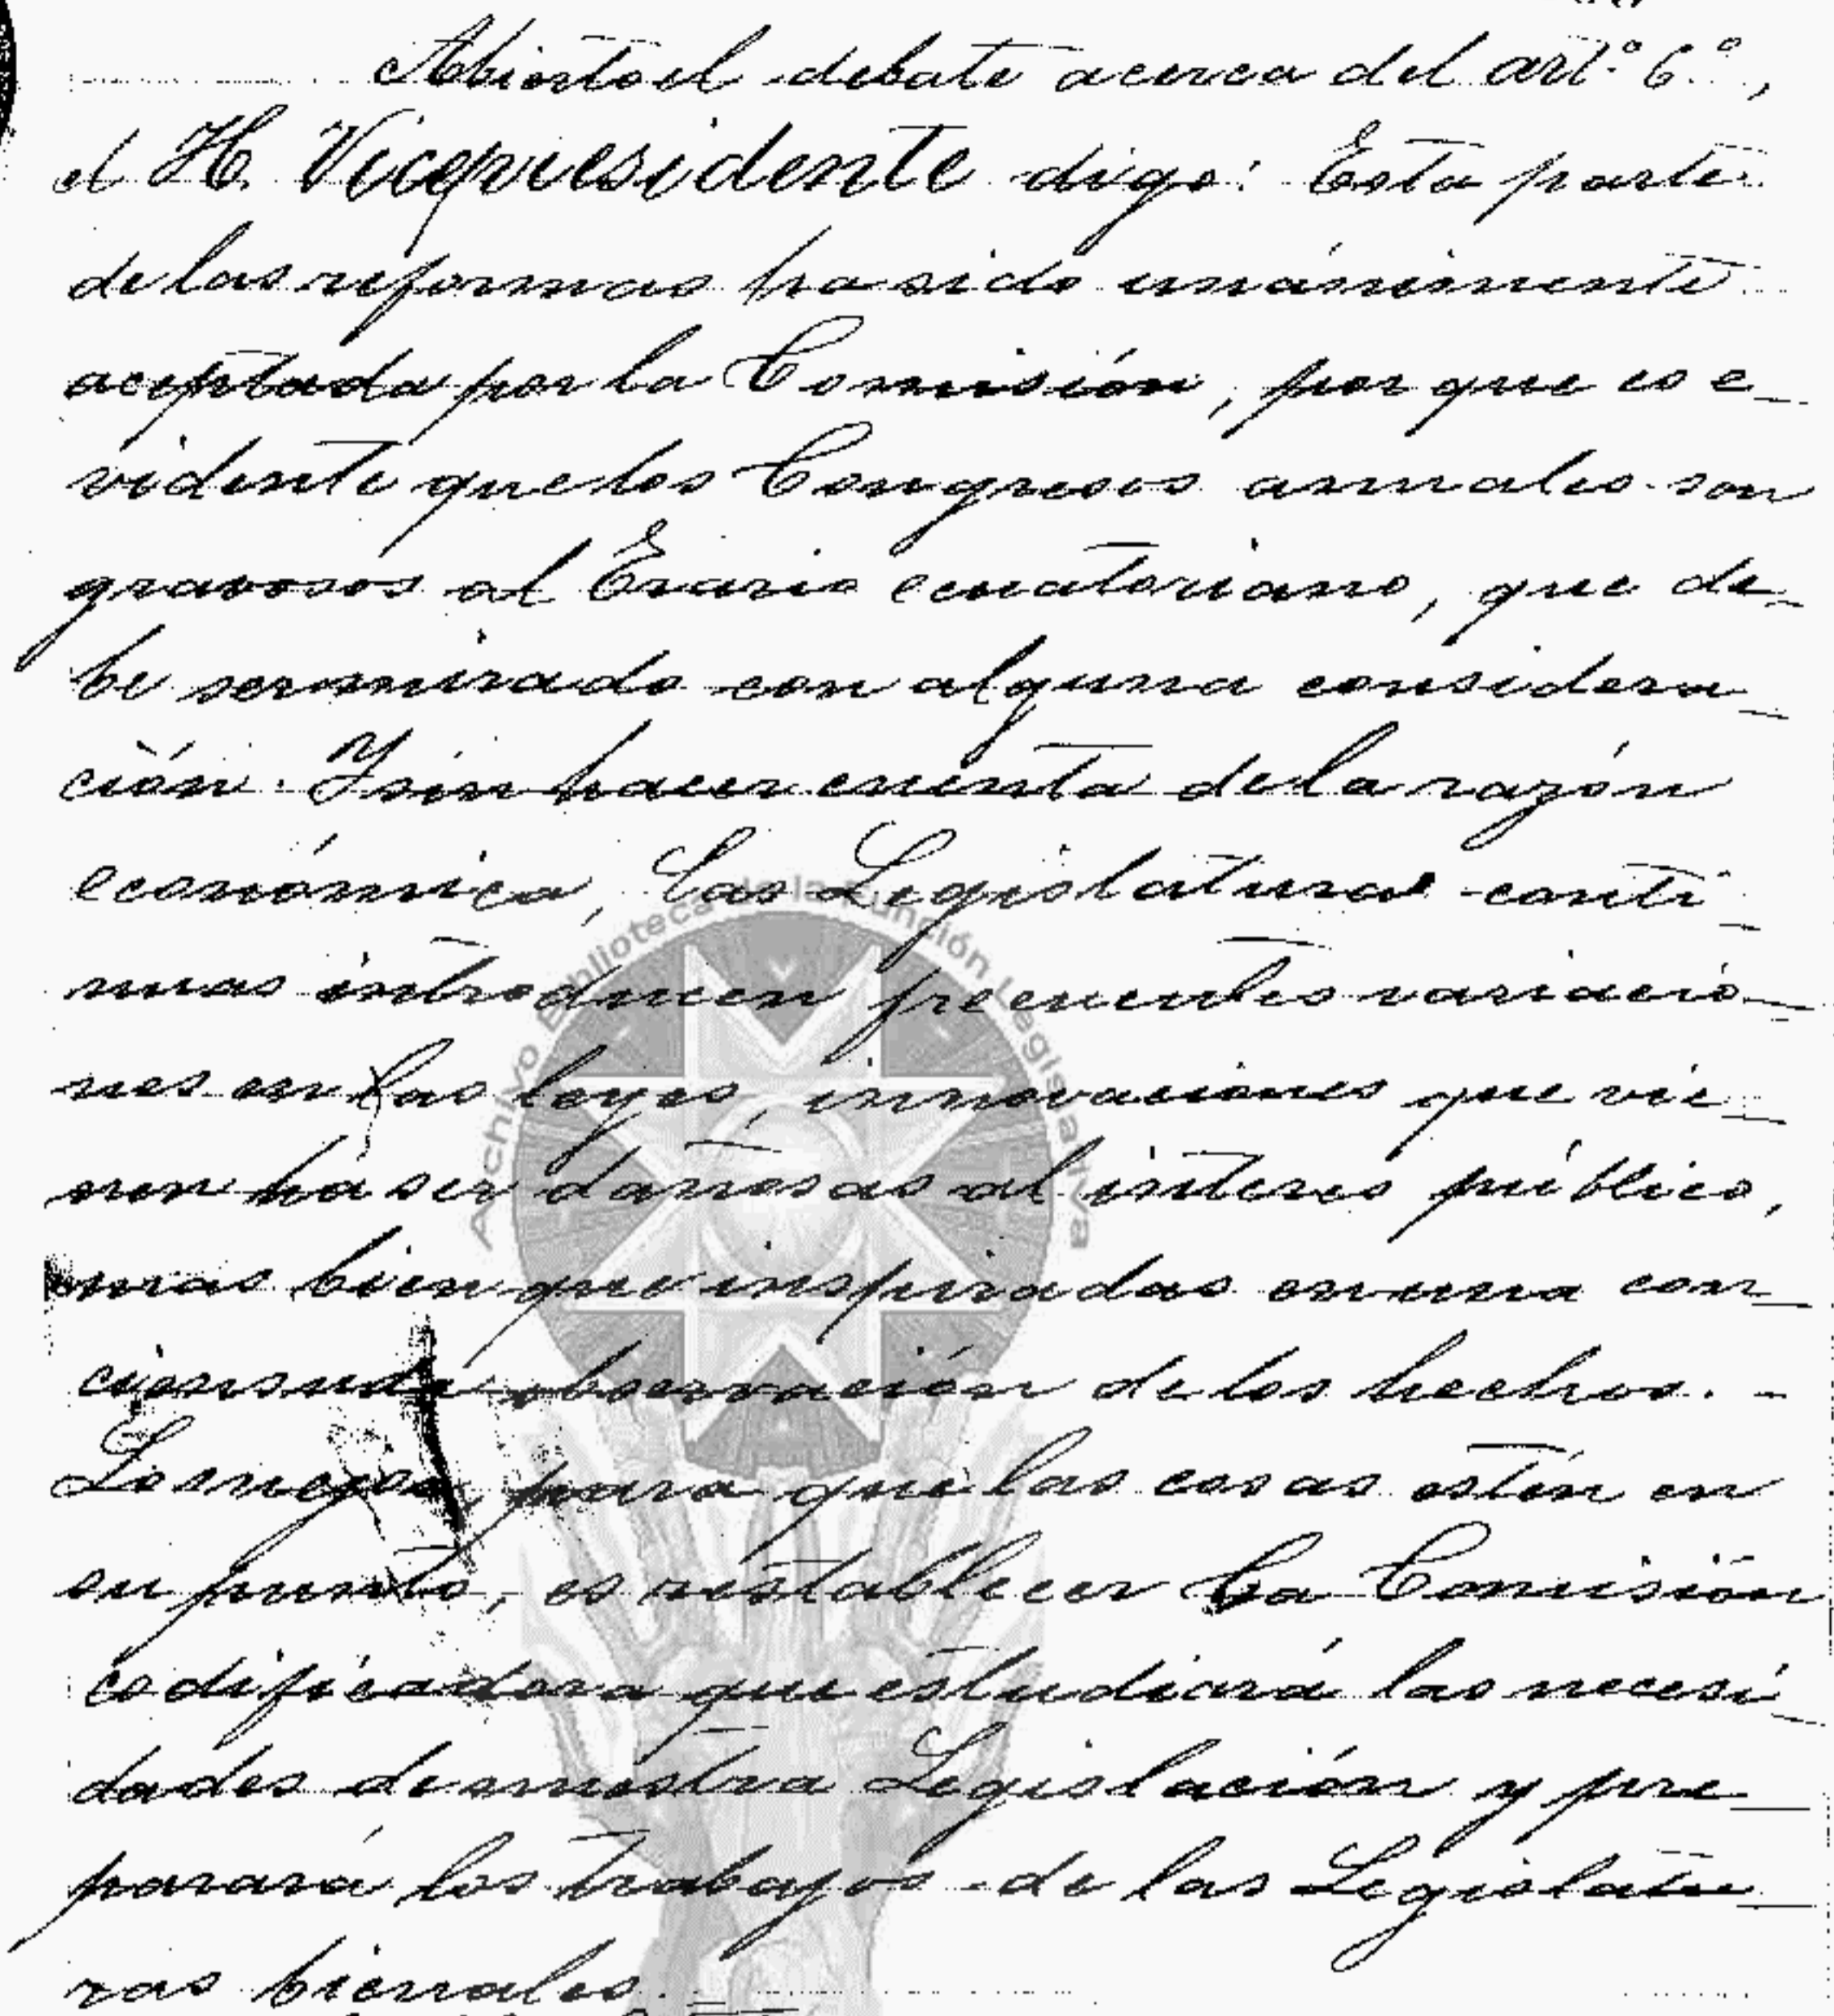 Abierto el debate acerca del artº 6º,
el H. Vicepresidente dijo: Esta parte
de las reformas ha sido unánimente
aceptada por la Comisión, por que es e-
vidente que los Congresos anuales son
gravosos al Erario ecuatoriano, que de-
be ser mirado con alguna considera-
ción. Y sin hacer cuenta de la razón
económica, las Legislaturas conti-
nuas introducen frecuentes variacio-
nes en las leyes, innovaciones que vie-
nen há ser dañosas al interes público,
mas bien que inspiradas en una con-
cienzuda observación de los hechos. -
Lo mejor, para que las cosas estén en
su punto, es restablecer la Comisión
codificadora que estudiará las necesi-
dades de nuestra Legislación y pre-
parará los trabajos de las Legislatu-
ras bienales.
Archivo Biblioteca de la Función Legislativa